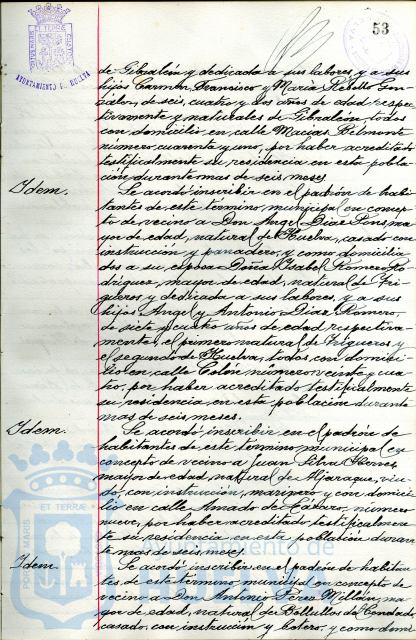 53
AYUNTAMIENTO DE HUELVA
de Gibraleón y dedicada a sus labores, y a sus
hijos Carmen, Francisco y María Rebollo Gon-
zález, de seis, cuatro y dos años de edad respec-
tivamente y naturales de Gibraleón, todos
con domicilio en calle Macías Belmonte
número cuarenta y uno, por haber acreditado
testificalmente su residencia en esta pobla-
ción durante mas de seis meses.
Idem. Se acordó inscribir en el padrón de habi-
tantes de este término municipal en concep-
to de vecino a Don Angel Díaz Pons, ma-
yor de edad, natural de Huelva, casado con
instrucción y panadero, y como domicilia-
dos a su esposa Doña Isabel Romero Ro-
dríguez, mayor de edad, natural de Tri-
gueros y dedicada a sus labores, y a sus
hijos Angel y Antonio Díaz Romero,
de siete y cuatro años de edad respectiva-
mente, el primero natural de Trigueros y
el segundo de Huelva, todos con domici-
lio en calle Colón número veinte y cua-
tro, por haber acreditado testificalmente
su residencia en esta población durante
mas de seis meses.
Idem. Se acordó inscribir en el padrón de
habitantes de este término municipal en
concepto de vecino a Juan Silva
mayor de edad, natural de Moraque, viu-
do, con instrucción, marinero y con domici-
lio en calle Amado de Lázaro, número
nueve, por haber acreditado testificalmen-
te su residencia en esta población duran-
te mas de seis meses.
Idem. Se acordó inscribir en el padrón de habitan-
tes de este término municipal en concepto de
vecino a Don Antonio Pérez Millán, ma-
yor de edad, natural de Bollullos del Condado,
casado, con instrucción y botero, y como domi-
PORTUS MARIS ET TERRAE
Ayuntamiento de